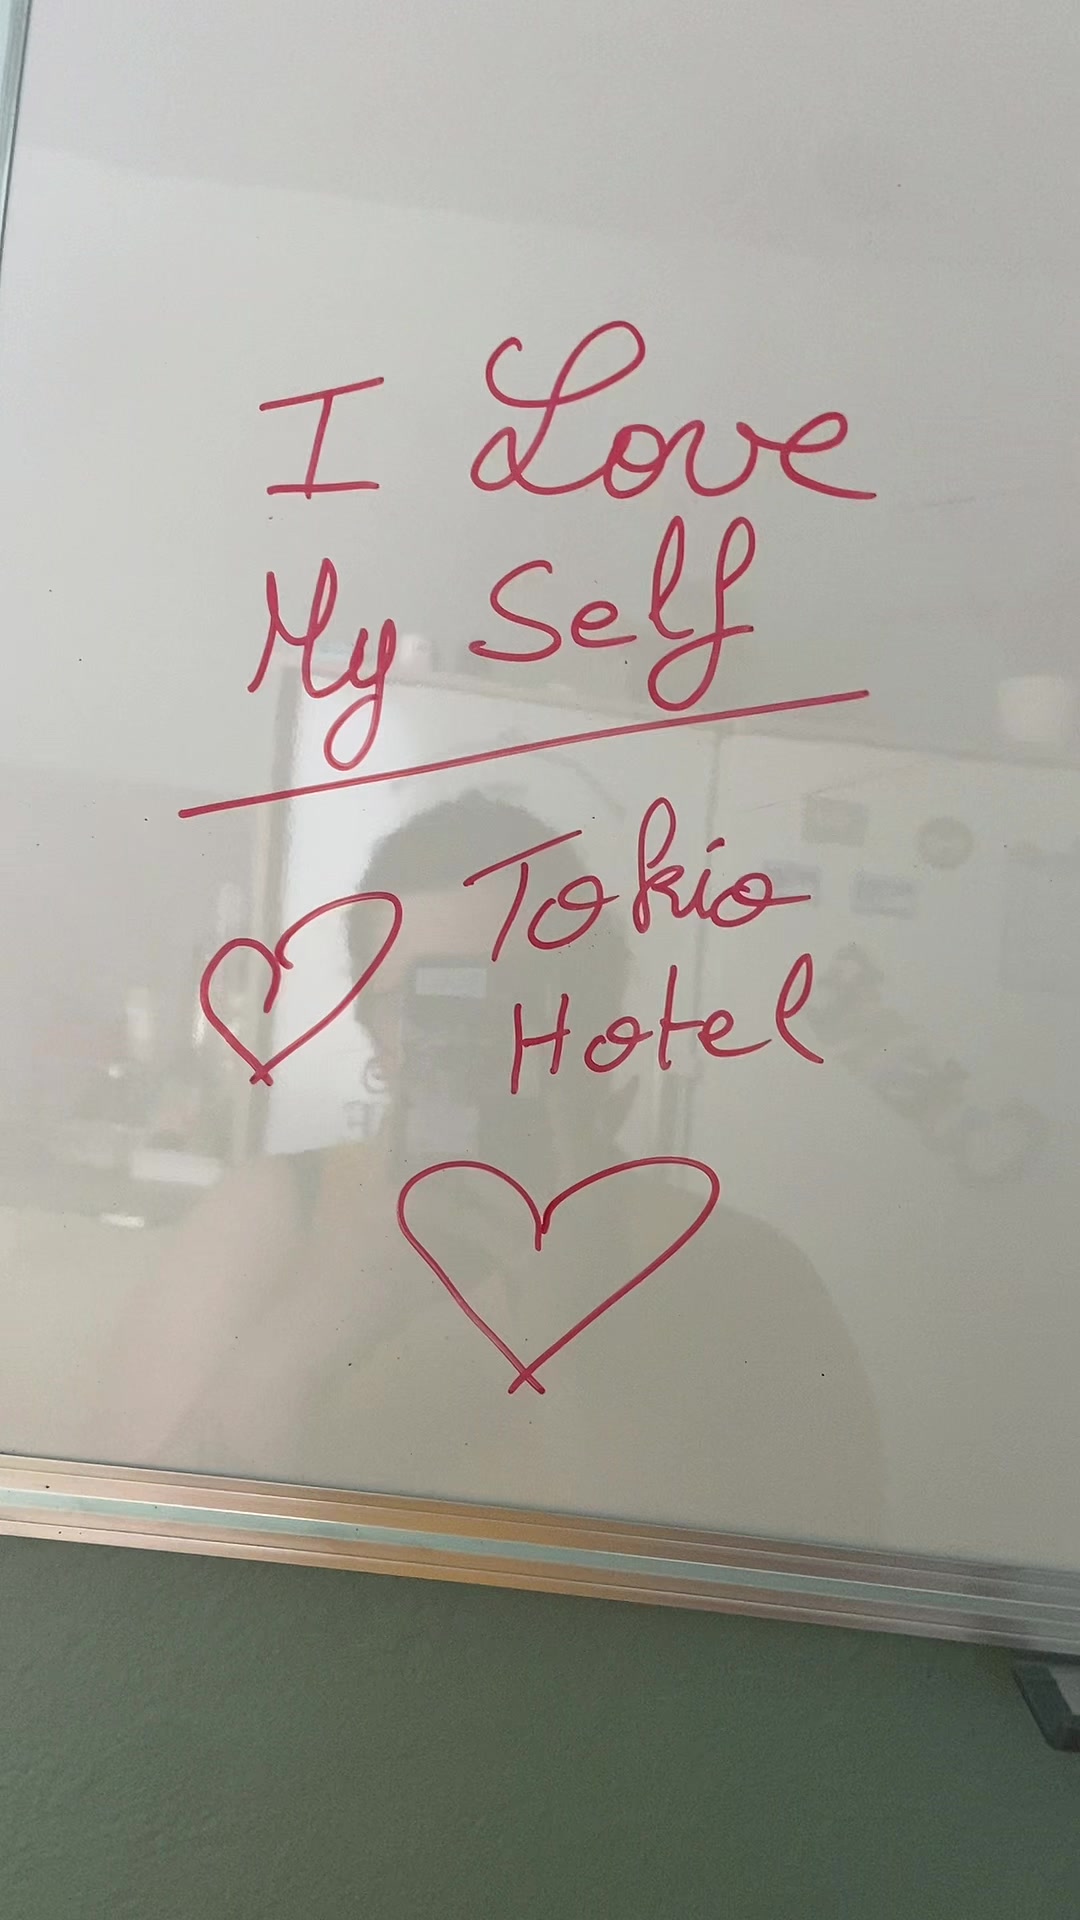 I Love
My Self
Tokio
Hotel